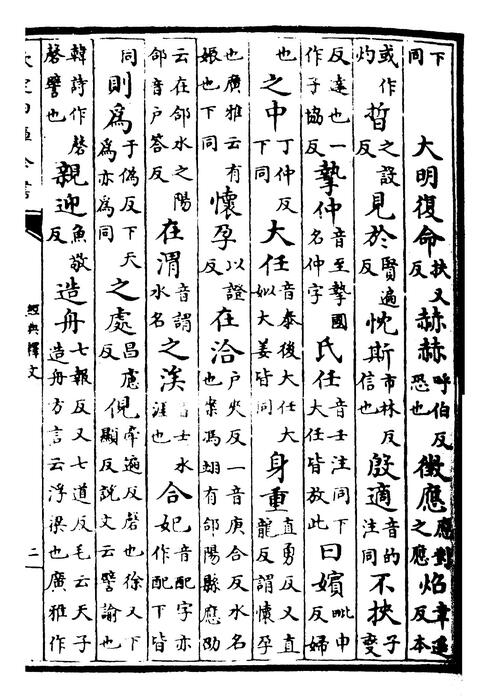 下同 大明復命扶又反赫赫呼伯反恐也徵應應對之應焰章遙反本
或作灼晢之設反見於賢遍反忱斯市林反信也殷適音的注同不挾子燮
反達也一作子協反摯仲音至摯國名仲字氏任音壬注同下大任皆放此曰嬪毗申反婦
也之中丁仲反下同大任音泰後大任大姒大姜皆同身重直勇反又直龍反謂懷孕
也廣雅云有娠也下同懷孕以證反在洽户夾反一音庚合反水名也案馮翊有郃陽縣應劭
云在郃水之陽郃音户答反在渭音謂水名之涘音士水涯也合妃音配字亦作配下皆
同則為于偽反下天為亦為同之處昌慮反俔牽遍反磬也徐又下顯反說文云譬諭也
韓詩作磬磬譬也親迎魚敬反造舟七報反又七道反毛云天子造舟方言云浮梁也廣雅作
經典釋文
二